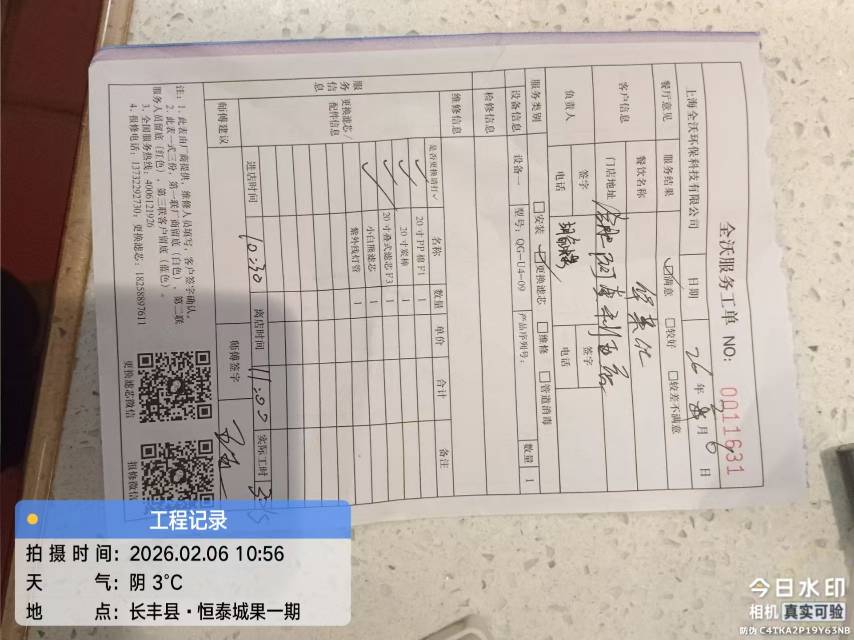 全沃服务工单 NO: 0011631
上海全沃环保科技有限公司 日期 26年 月6日
餐厅意见 服务结果 ☑满意 □较好 □较差不满意
客户信息 餐饮名称
门店地址
负责人 签字 签字
电话 电话
服务类别 □安装 ☑更换滤芯 □维修 □管道消毒
设备信息 设备一 型号: QG-U4-09 产品序列号: 数量 1
检修信息
维修信息
服务信息
更换滤芯/配件信息
是否更换请打✓ 名称 数量 单价 合计 备注
✓ 20寸PP棉F1 1
✓ 20寸炭棒 1
✓ 20寸叠式滤芯F3 1
✓ 小白熊滤芯 1
紫外线灯管 1
进店时间 10:30 离店时间 11:00 实际工时
师傅建议 师傅签字
注: 1. 此表由厂商提供, 维修人员填写, 客户签字确认。
2. 此表一式三份, 第一联厂商留底(白色), 第二联
服务人员留底(红色), 第三联客户留底(蓝色)。
3. 全国服务热线: 4006121926
4. 报修电话: 13732292730; 更换滤芯: 18258897611
更换滤芯微信
报修微信
工程记录
拍摄时间: 2026.02.06 10:56
天 气: 阴 3℃
地 点: 长丰县·恒泰城果一期
今日水印
相机 真实可验
防伪 C4TKA2P19Y63NB